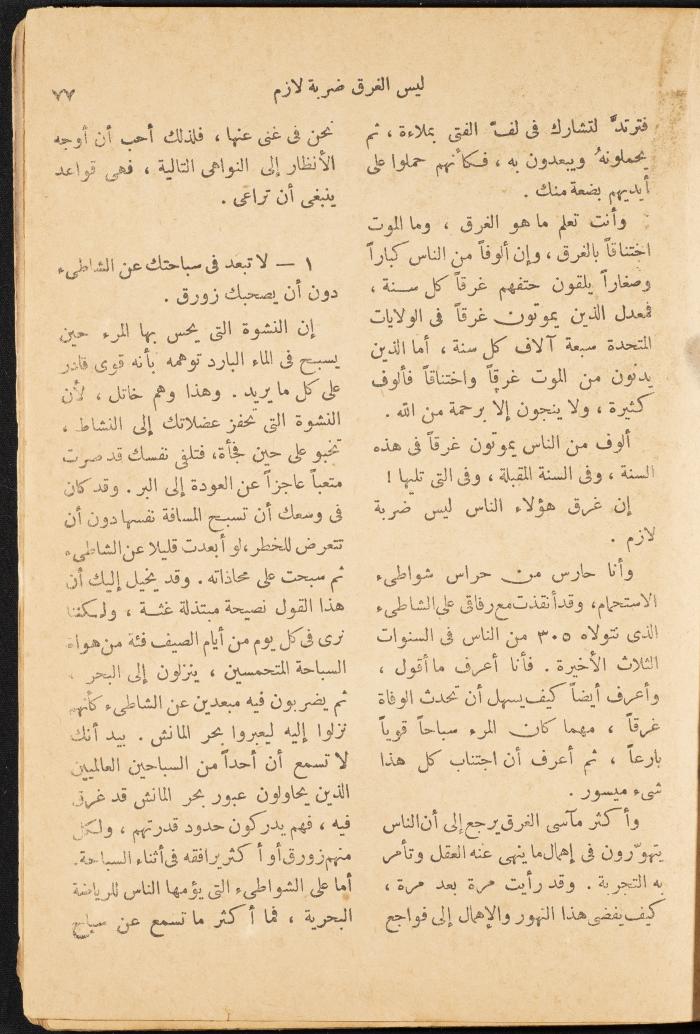 ليس الغرق ضربة لازم
٧٧
فترتدَّ لتشارك فى لفّ الفتى بملاءة ، ثم
يحملونهُ ويبعدون به ، فكأنهم حملوا على
أيديهم بضعة منك .
وأنت تعلم ما هو الغرق ، وما الموت
اختناقاً بالغرق ، وإن ألوفاً من الناس كباراً
وصغاراً يلقون حتفهم غرقاً كل سنة ،
فمعدل الذين يموتون غرقاً فى الولايات
المتحدة سبعة آلاف كل سنة ، أما الذين
يدنون من الموت غرقاً واختناقاً فألوف
كثيرة ، ولا ينجون إلا برحمة من الله .
ألوف من الناس يموتون غرقاً فى هذه
السنة ، وفى السنة المقبلة ، وفى التى تليها !
إن غرق هؤلاء الناس ليس ضربة
لازم .
وأنا حارس من حراس شواطىء
الاستحمام، وقد أنقذت مع رفاقى على الشاطىء
الذى نتولاه ٣٠٥ من الناس فى السنوات
الثلاث الأخيرة . فأنا أعرف ما أقول ،
وأعرف أيضاً كيف يسهل أن تحدث الوفاة
غرقاً ، مهما كان المرء سباحاً قوياً
بارعاً ، ثم أعرف أن اجتناب كل هذا
شىء ميسور .
وأكثر مآسى الغرق يرجع إلى أن الناس
يتهوّرون فى إهمال ما ينهى عنه العقل وتأمر
به التجربة . وقد رأيت مرة بعد مرة ،
كيف يفضى هذا التهور والإهمال إلى فواجع
نحن فى غنى عنها ، فلذلك أحب أن أوجه
الأنظار إلى النواهى التالية ، فهى قواعد
ينبغى أن تراعى .
١ — لا تبعد فى سباحتك عن الشاطىء
دون أن يصحبك زورق .
إن النشوة التى يحس بها المرء حين
يسبح فى الماء البارد توهمه بأنه قوى قادر
على كل ما يريد . وهذا وهم خاتل ، لأن
النشوة التى تحفز عضلاتك إلى النشاط ،
تخبو على حين فجأة، فتلفى نفسك قد صرت
متعباً عاجزاً عن العودة إلى البر . وقد كان
فى وسعك أن تسبح المسافة نفسها دون أن
تتعرض للخطر، لو أبعدت قليلا عن الشاطىء
ثم سبحت على محاذاته . وقد يخيل إليك أن
هذا القول نصيحة مبتذلة غثة ، ولكننا
نرى فى كل يوم من أيام الصيف فئة من هواة
السباحة المتحمسين ، ينزلون إلى البحر ،
ثم يضربون فيه مبعدين عن الشاطىء كأنهم
نزلوا إليه ليعبروا بحر المانش . بيد أنك
لا تسمع أن أحداً من السباحين العالميين
الذين يحاولون عبور بحر المانش قد غرق
فيه ، فهم يدركون حدود قدرتهم ، ولكل
منهم زورق أو أكثر يرافقه فى أثناء السباحة.
أما على الشواطىء التى يؤمها الناس للرياضة
البحرية ، فما أكثر ما تسمع عن سباح